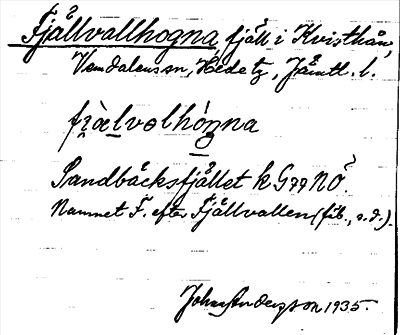 Fjällvallhogna, fjäll i Kvisthån,
Vemdalens sn, Hede tg, Jämtl. l.
Sandbäcksfjället k G 99 NÖ.
Namnet F. efter Fjällvallen (fäb., s.d.).
Johan Anderson 1935.